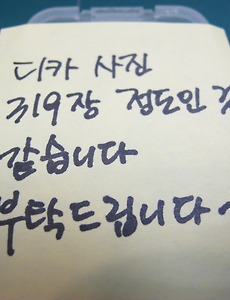 디카 사진
319장 정도인 것
같습니다
부탁드립니다~